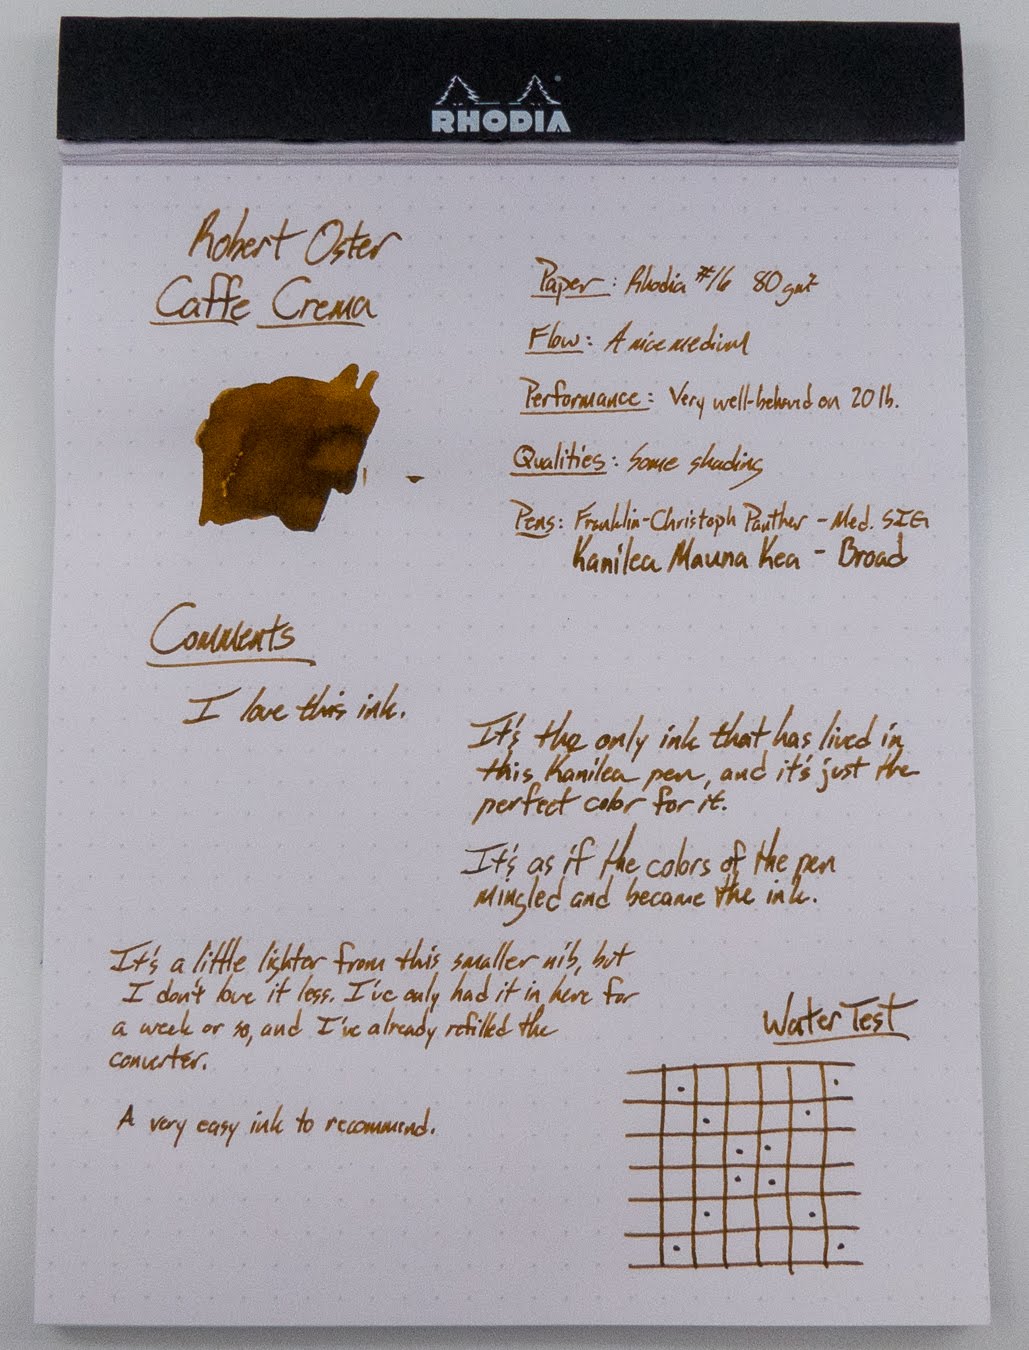 RHODIA
Robert Oster
Caffe Crema
Paper: Rhodia #16 80gm²
Flow: A nice medium
Performance: Very well-behaved on 20 lb.
Qualities: Some shading
Pens: Franklin-Christoph Panther - Med. SIG
Kanilea Mauna Kea - Broad
Comments
I love this ink.
It's the only ink that has lived in
this Kanilea pen, and it's just the
perfect color for it.
It's as if the colors of the pen
mingled and became the ink.
It's a little lighter from this smaller nib, but
I don't love it less. I've only had it in here for
a week or so, and I've already refilled the
converter.
A very easy ink to recommend.
Water Test